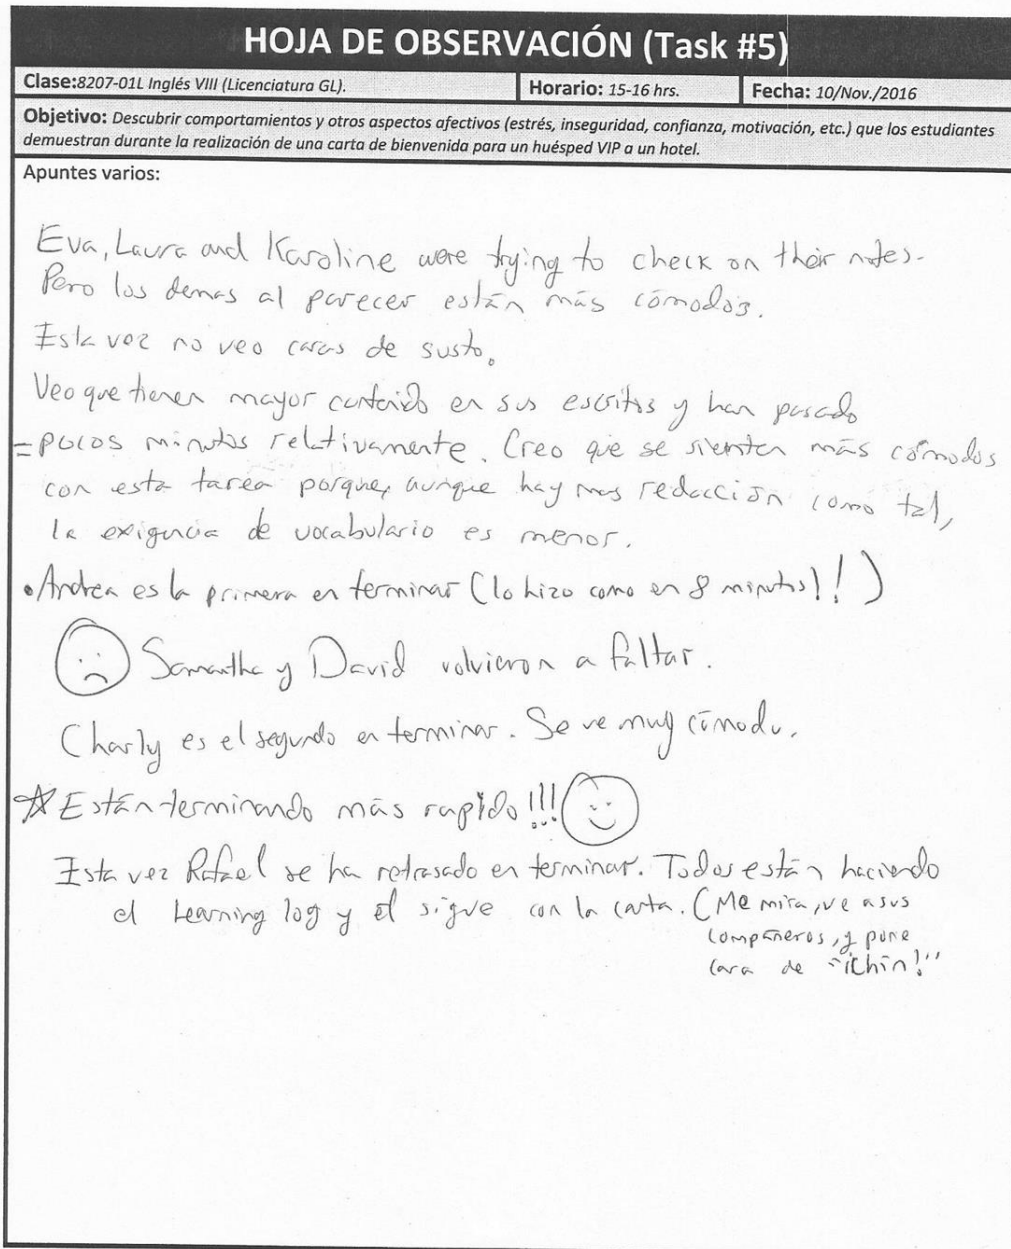 HOJA DE OBSERVACIÓN (Task #5)
Clase:8207-01L Inglés VIII (Licenciatura GL). Horario: 15-16 hrs. Fecha: 10/Nov./2016
Objetivo: Descubrir comportamientos y otros aspectos afectivos (estrés, inseguridad, confianza, motivación, etc.) que los estudiantes
demuestran durante la realización de una carta de bienvenida para un huésped VIP a un hotel.
Apuntes varios:
Eva, Laura and Karoline were trying to check on their notes.
Pero los demas al parecer están más cómodos.
Esta vez no veo caras de susto.
Veo que tienen mayor contenido en sus escritos y han pasado
= pocos minutos relativamente. Creo que se sienten más cómodos
con esta tarea porque, aunque hay mas redacción como tal,
la exigencia de vocabulario es menor.
• Andrea es la primera en terminar (lo hizo como en 8 minutos)!)
Samantha y David volvieron a faltar.
Charly es el segundo en terminar. Se ve muy cómodo.
☆ Están terminando más rapido!!!
Esta vez Rafael se ha retrasado en terminar. Todos están haciendo
el Learning log y él sigue con la carta. (Me mira, ve a sus
compañeros, y pone
cara de "¡chin!"